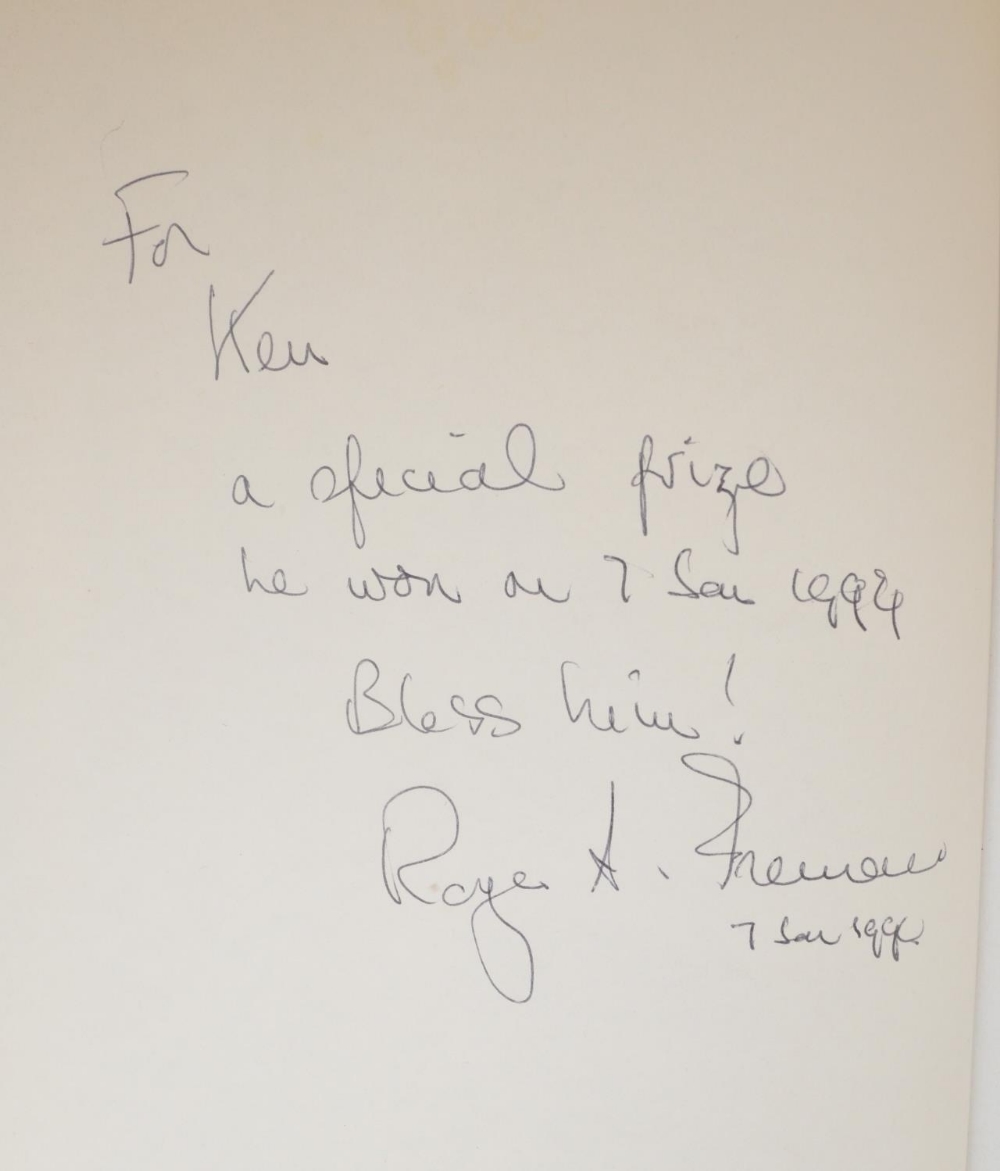 For
Ken
a special prize
he won on 7 Jan 1994
Bless him!
Roger A. Freeman
7 Jan 1994